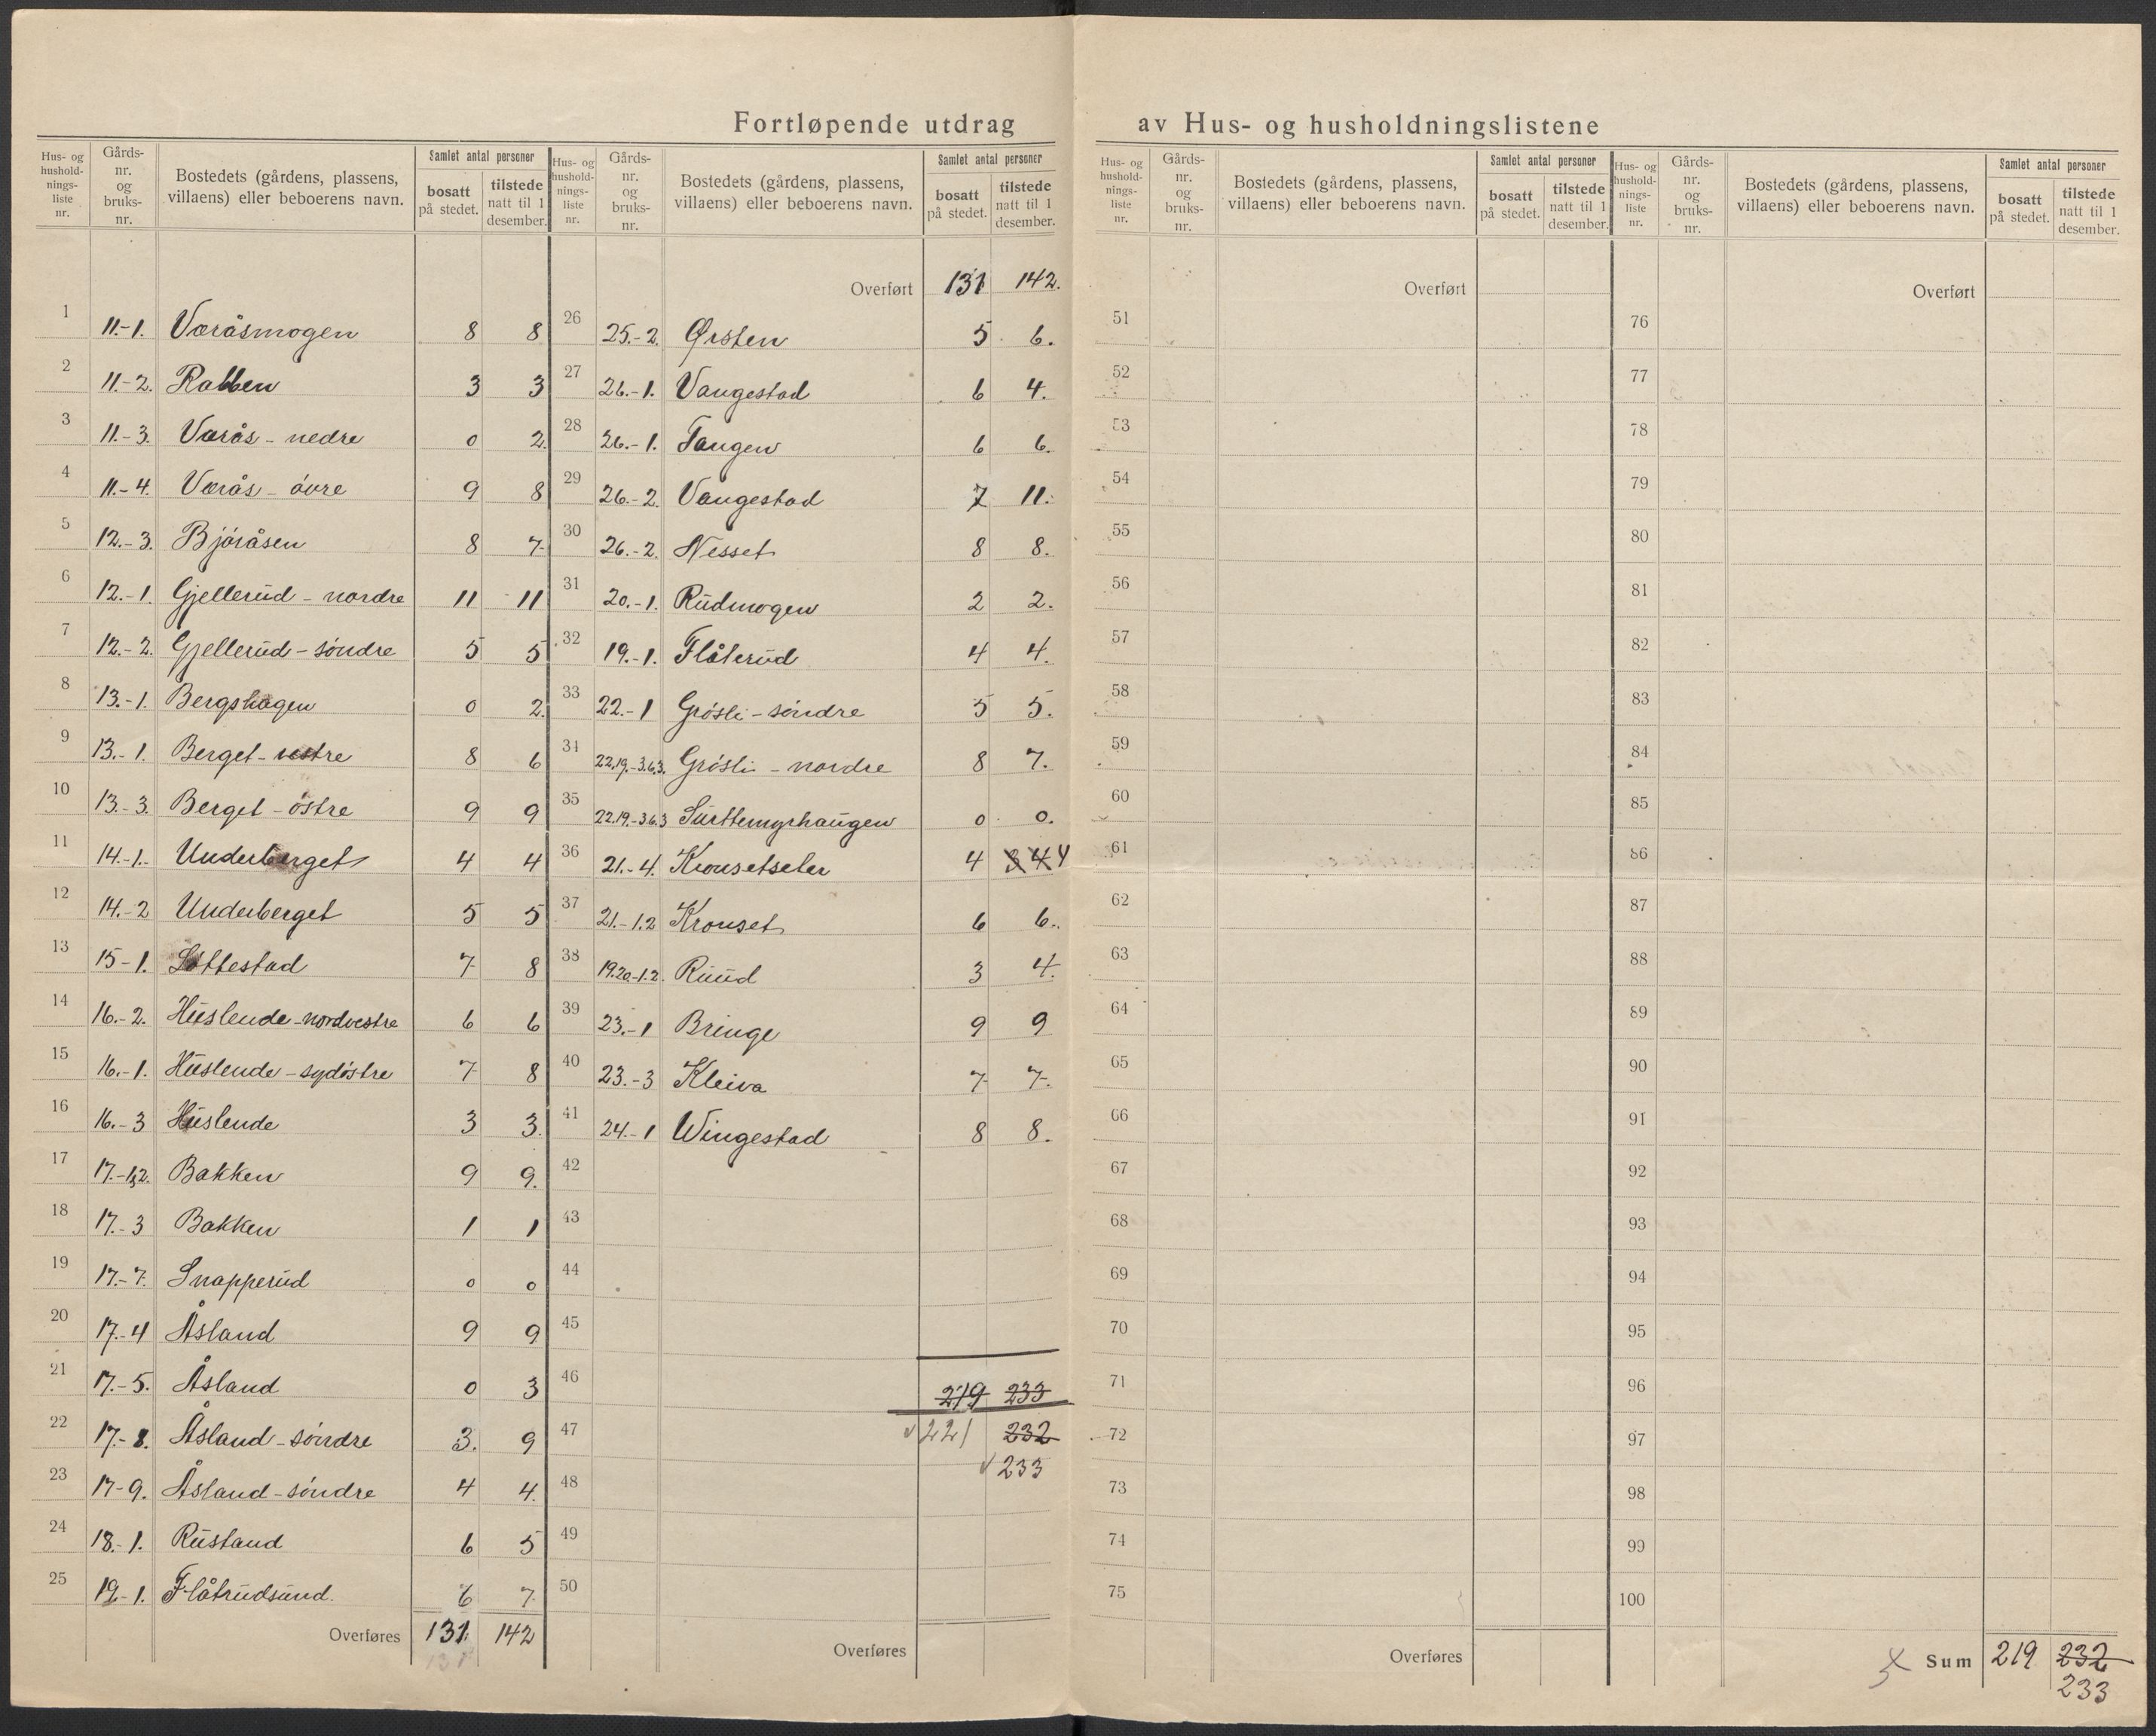 Fortløpende utdrag av Hus- og husholdningslistene
Hus- og husholdnings-liste nr. Gårds-nr. og bruks-nr. Bostedets (gårdens, plassens, villaens) eller beboerens navn. Samlet antal personer bosatt på stedet. tilstede natt til 1 desember.
1 11.-1. Væråsmogen 8 8
2 11.-2. Rabben 3 3
3 11.-3. Værås - nedre 0 2.
4 11.-4. Værås - övre 9 8
5 12.-3. Björåsen 8 7
6 12.-1. Gjellerud - nordre 11 11
7 12.-2. Gjellerud - söndre 5 5
8 13.-1. Bergshagen 0 2.
9 13.-1. Berget - vestre 8 6
10 13.-3. Berget - östre 9 9
11 14.-1.- Underberget 4 4
12 14.-2 Underberget 5 5
13 15-1. Lottestad 7 8
14 16.-2. Huslende - nordvestre 6 6
15 16.-1. Huslende - sydöstre 7 8
16 16.-3 Huslende 3 3.
17 17.-1,2. Bakken 9 9.
18 17.-3 Bakken 1 1
19 17.-7. Snapperud 0 0
20 17.-4 Åsland 9 9
21 17.-5. Åsland 0 3
22 17.-8. Åsland - söndre 3. 9
23 17-9. Åsland - söndre 4 4.
24 18.-1. Rustand 6 5
25 19.-1. Flåtrudsund. 6 7
Overføres 131 142
131
Hus- og husholdnings-liste nr. Gårds-nr. og bruks-nr. Bostedets (gårdens, plassens, villaens) eller beboerens navn. Samlet antal personer bosatt på stedet. tilstede natt til 1 desember.
Overført 131 142.
26 25.-2. Ørsten 5 6.
27 26.-1. Vangestad 6 4.
28 26.-1. Tangen 6 6.
29 26.-2. Vangestad 7 11.
30 26.-2. Nesset 8 8.
31 20.-1. Rudmogen 2 2.
32 19.-1. Flåterud 4 4.
33 22.-1 Grösli - söndre 5 5.
34 22.19.-3.6.3. Grösli - nordre 8 7.
35 22.19.-3.6.3 Surttemyrhaugen 0 0.
36 21.-4. Kronsetseter 4 3 4 4
37 21.-1.2 Kronset 6 6.
38 19.20-1.2. Ruud 3 4.
39 23.-1 Bringe 9 9
40 23.-3 Kleiva 7 7.
41 24.-1 Wingestad 8 8.
42
43
44
45
46 219 233
47 221 232
233
48
49
50
Overføres
Hus- og husholdnings-liste nr. Gårds-nr. og bruks-nr. Bostedets (gårdens, plassens, villaens) eller beboerens navn. Samlet antal personer bosatt på stedet. tilstede natt til 1 desember.
Overført
51
52
53
54
55
56
57
58
59
60
61
62
63
64
65
66
67
68
69
70
71
72
73
74
75
Overføres
Hus- og husholdnings-liste nr. Gårds-nr. og bruks-nr. Bostedets (gårdens, plassens, villaens) eller beboerens navn. Samlet antal personer bosatt på stedet. tilstede natt til 1 desember.
Overført
76
77
78
79
80
81
82
83
84
85
86
87
88
89
90
91
92
93
94
95
96
97
98
99
100
Sum 219 232
233